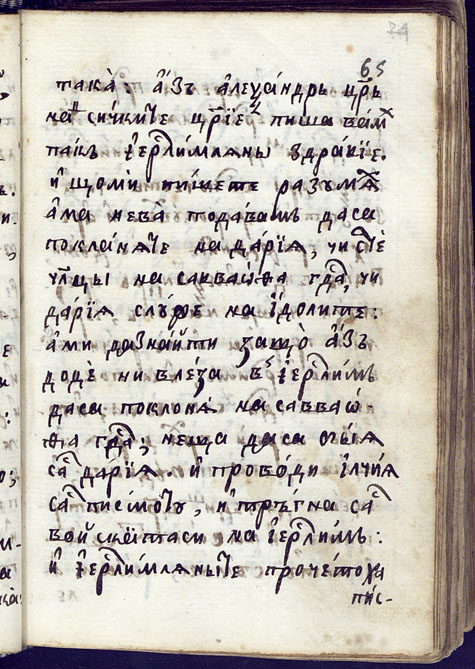 74
65
така̀: а҆́зъ алеѯа́ндръ цр҃ъ
на сичкиⷮе цр҃їе пиша ваⷨ
пакъ і҆ерⷭ҇лимляны здравїе.
и҆ щоми пишете разъмѧ
а҆ма нева̀ подавамъ даса
покланяⷮе на да́рїѧ, чи стⷷе
чл҃цы на саваѡ́ѳа гдⷭ҇а, чи
да́рїѧ слꙋже на і҆долите:
а҆ми дазна́йти защо̀ а҆́зъ
додѐ ни влѣза въ і҆ерⷭ҇лимъ
даса поклонѧ на савваѡ́
ѳа гдⷭ҇а; неща даса бїѧ
саⷭ да́рїѧ. и҆ прово́ди і҆лчїѧ
саⷭ писмоⷮꙋ, и҆ тръ́гна саⷭ
войскѫтаси на і҆ерⷭ҇лимъ:
и҆ і҆ерⷭ҇лимляныⷮе прочетоха
пис-